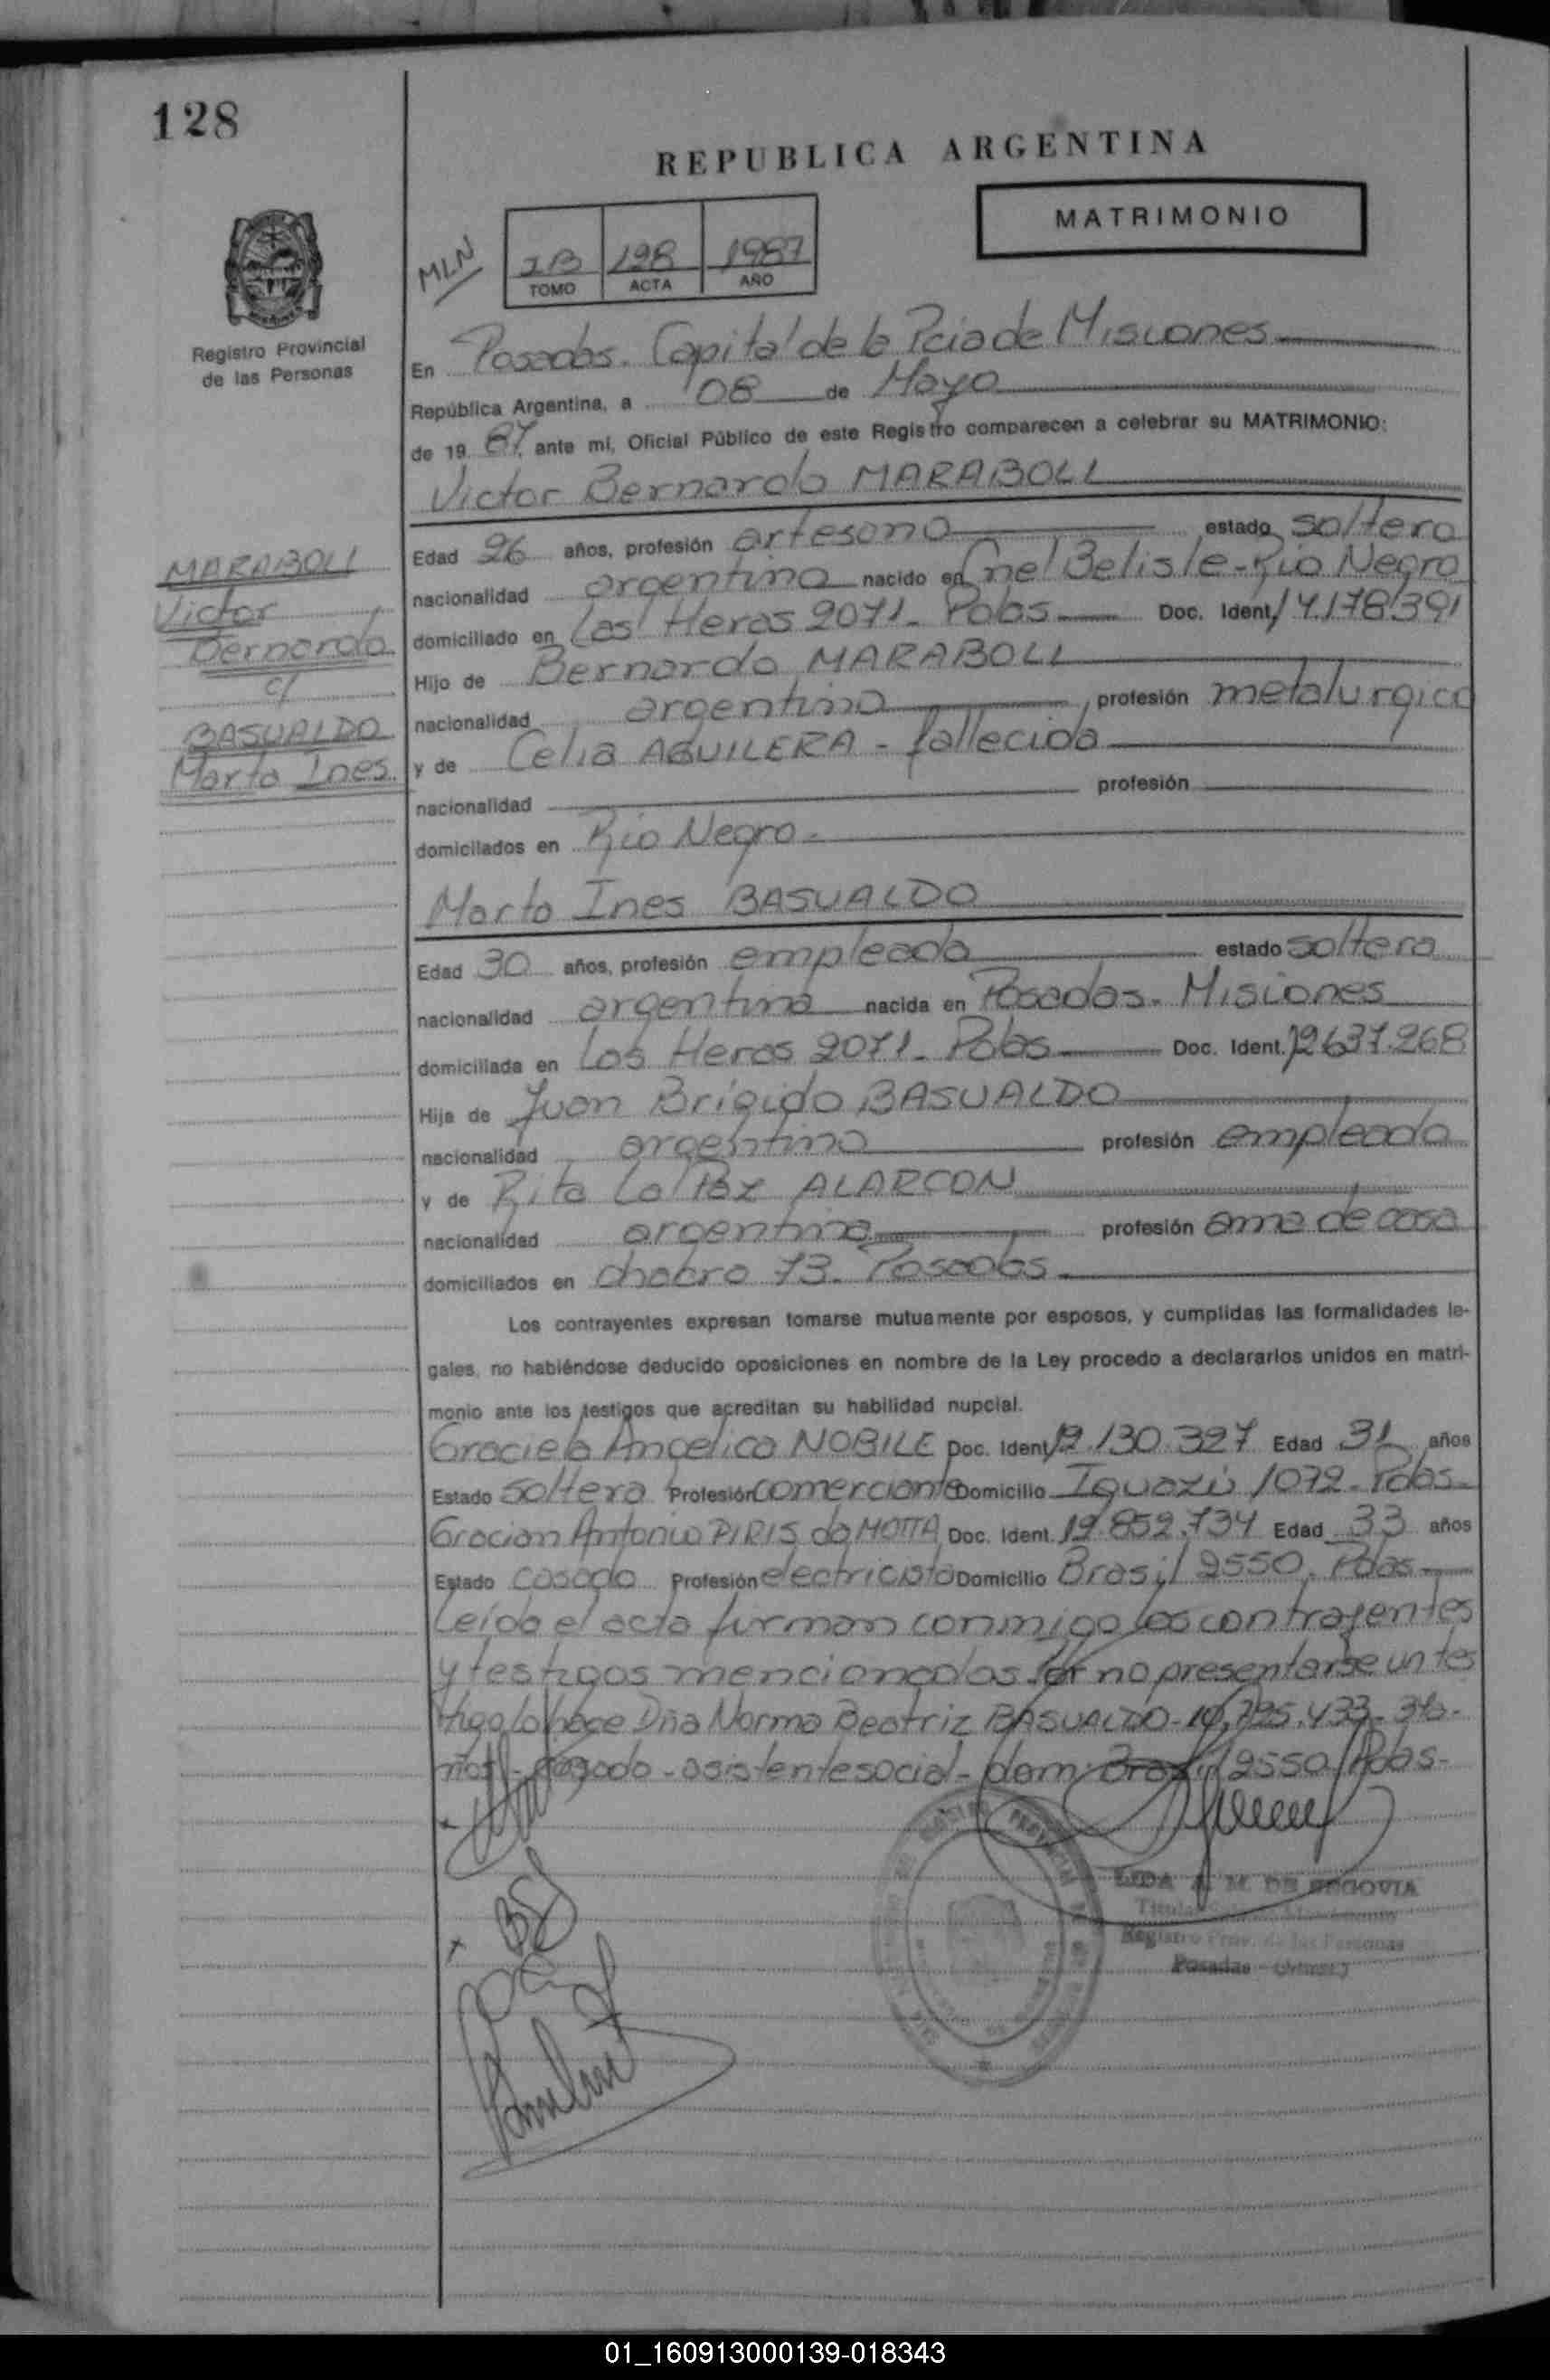 128
REPUBLICA ARGENTINA
MATRIMONIO
MLN
1B 128 1987
TOMO ACTA AÑO
Registro Provincial
de las Personas
En Posadas. Capital de la Pcia de Misiones
República Argentina, a 08 de Mayo
de 19 87, ante mí, Oficial Público de este Registro comparecen a celebrar su MATRIMONIO:
Victor Bernardo MARABOLI
MARABOLI
Victor
Bernardo
c/
BASUALDO
Marta Ines
Edad 26 años, profesión artesano estado soltero
nacionalidad argentino nacido en Cnel Belisle-Rio Negro
domiciliado en Las Heras 2071- Pdas Doc. Ident. 14.178.391
Hijo de Bernardo MARABOLI
nacionalidad argentino, profesión metalurgico
y de Celia AGUILERA - fallecida
nacionalidad profesión
domiciliados en Rio Negro-
Marta Ines BASUALDO
Edad 30 años, profesión empleada estado soltera
nacionalidad argentina nacida en Posadas- Misiones
domiciliada en Las Heras 2071- Pdas Doc. Ident. 12637.268
Hija de Juan Brígido BASUALDO
nacionalidad argentino profesión empleado
y de Rita La Paz ALARCON
nacionalidad argentina profesión ama de casa
domiciliados en chacra 73- Posadas
Los contrayentes expresan tomarse mutuamente por esposos, y cumplidas las formalidades le-
gales, no habiéndose deducido oposiciones en nombre de la Ley procedo a declararlos unidos en matri-
monio ante los testigos que acreditan su habilidad nupcial.
Graciela Angelica NOBILE Doc. Ident. 12.130.327 Edad 31 años
Estado soltera Profesión comerciante Domicilio Iguazú 1072- Pdas-
Gracian Antonio PIRIS da MOTTA Doc. Ident. 12.852.734 Edad 33 años
Estado casado Profesión electricista Domicilio Brasil 2550. Pdas
Leída el acta firman conmigo los contrayentes
y testigos mencionados. Por no presentarse un tes
tigo lo hace Dña Norma Beatriz BASUALDO- .795.433-
ños- casada - asistente social- dom: Brasil 2550 Pdas-
LIDA M. DE SEGOVIA
Registro Prov. de las Personas
Posadas
01_160913000139-018343